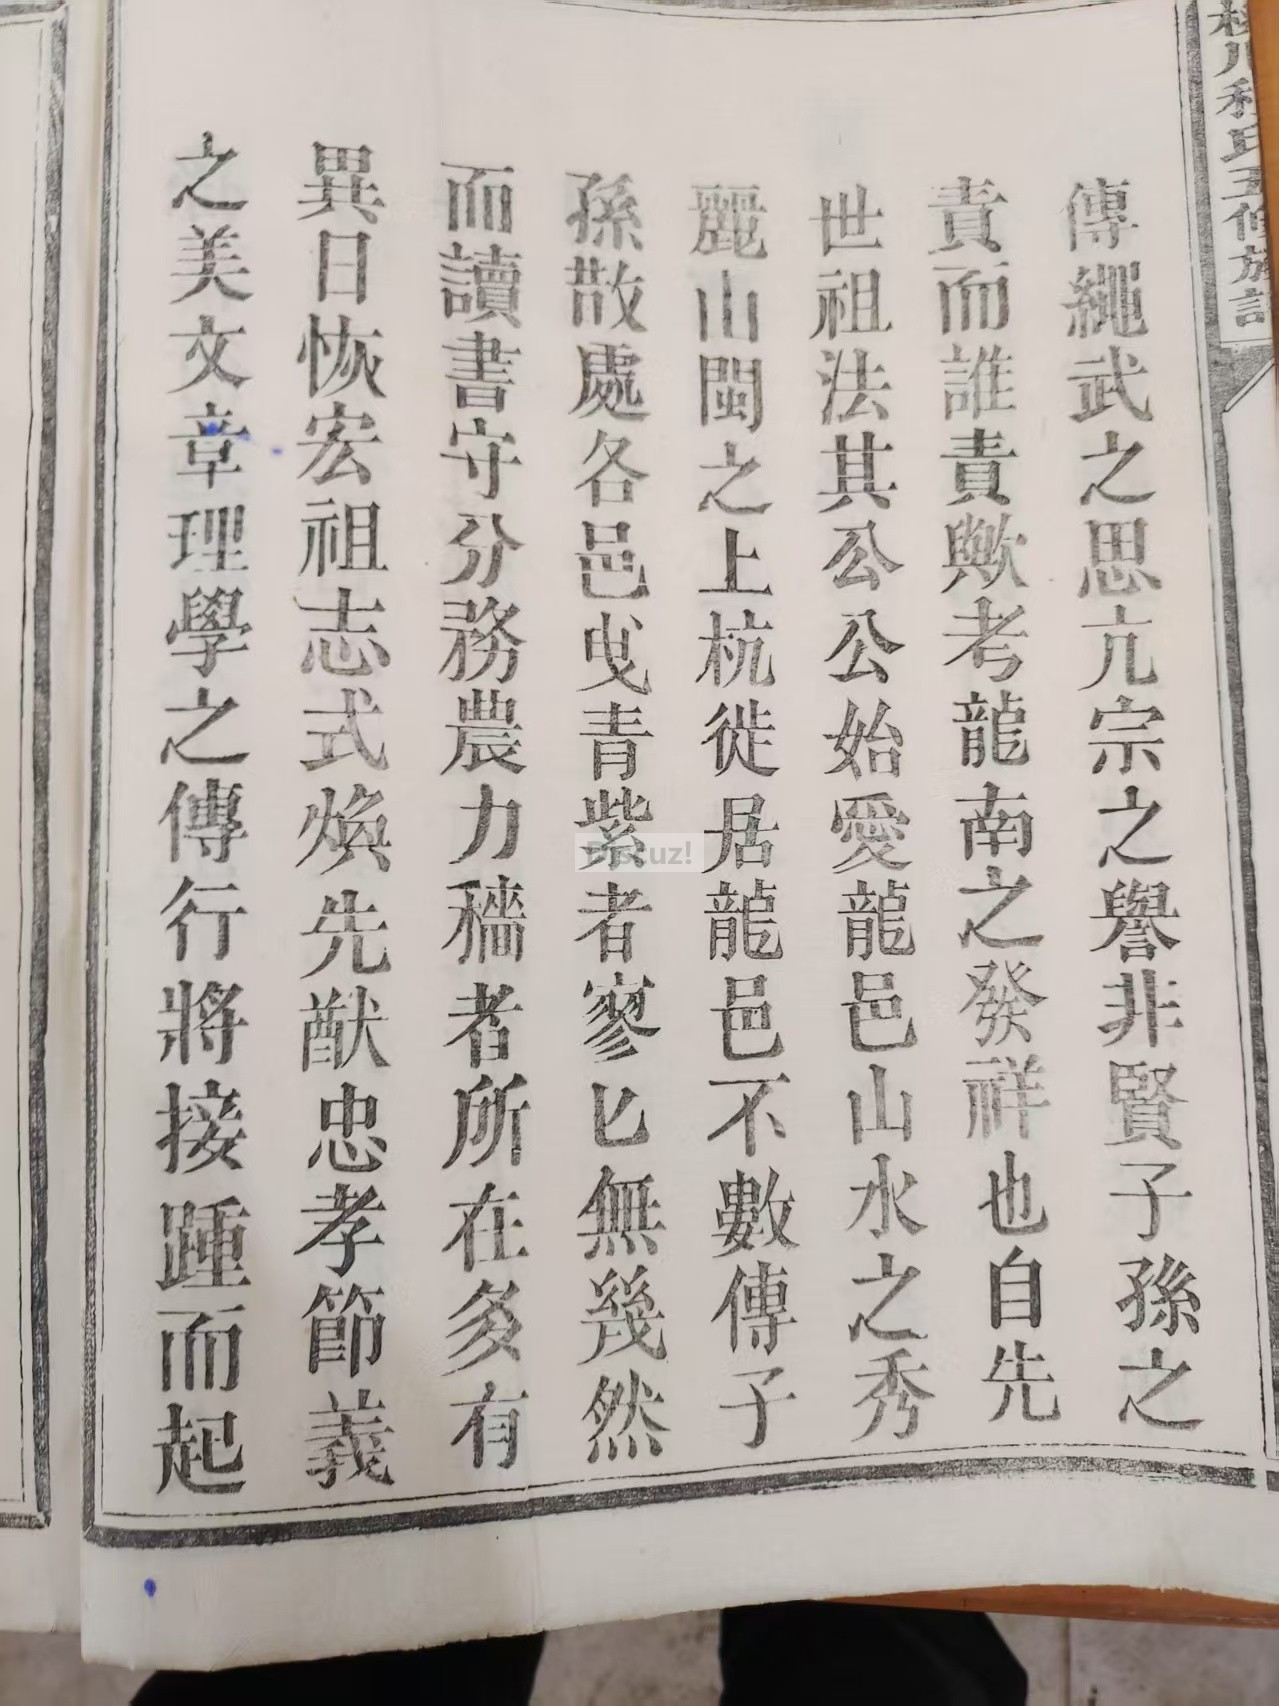 傳繩武之思亢宗之譽非賢子孫之
責而誰責歟考龍南之發祥也自先
世祖法其公公始愛龍邑山水之秀
麗山閩之上杭徙居龍邑不數傳子
孫散處各邑曳青紫者寥匕無幾然
而讀書守分務農力穡者所在多有
異日恢宏祖志式煥先猷忠孝節義
之美文章理學之傳行將接踵而起
氏五修族
Discuz!